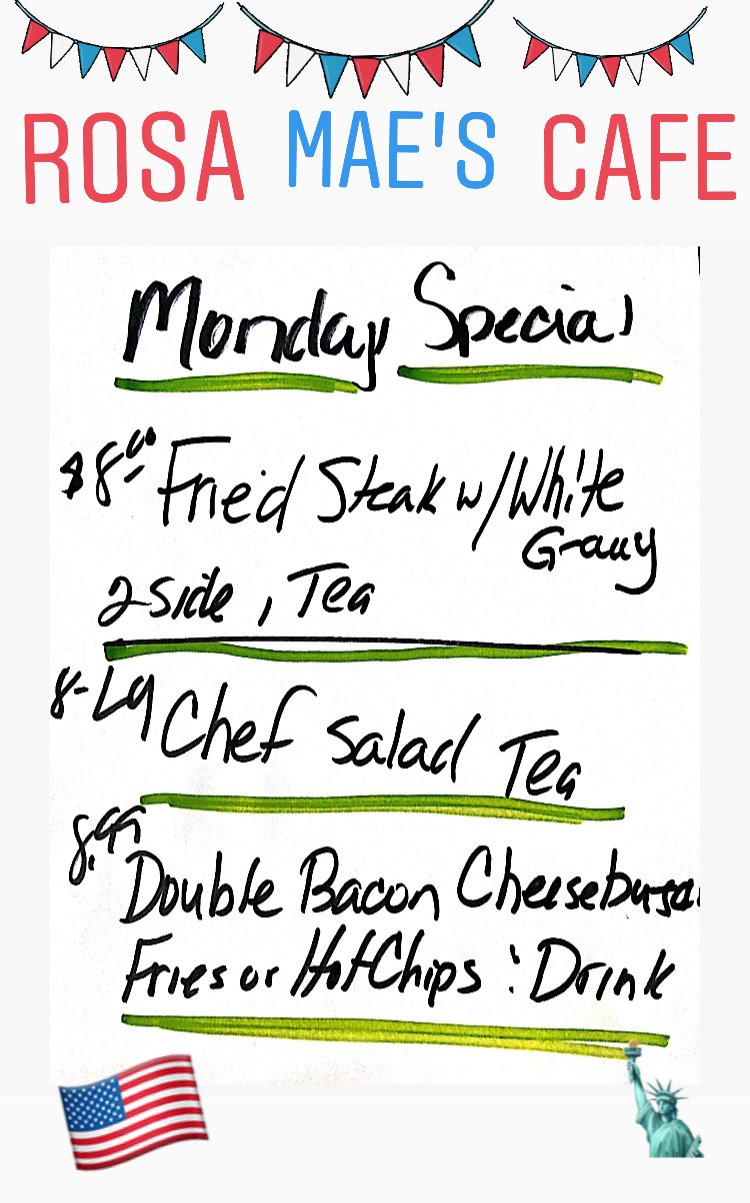 ROSA MAE'S CAFE
Monday Special
$8.00 Fried Steak w/ White
Gravy
2 side, Tea
8- Lg Chef Salad Tea
8.99
Double Bacon Cheeseburger
Fries or Hot Chips : Drink